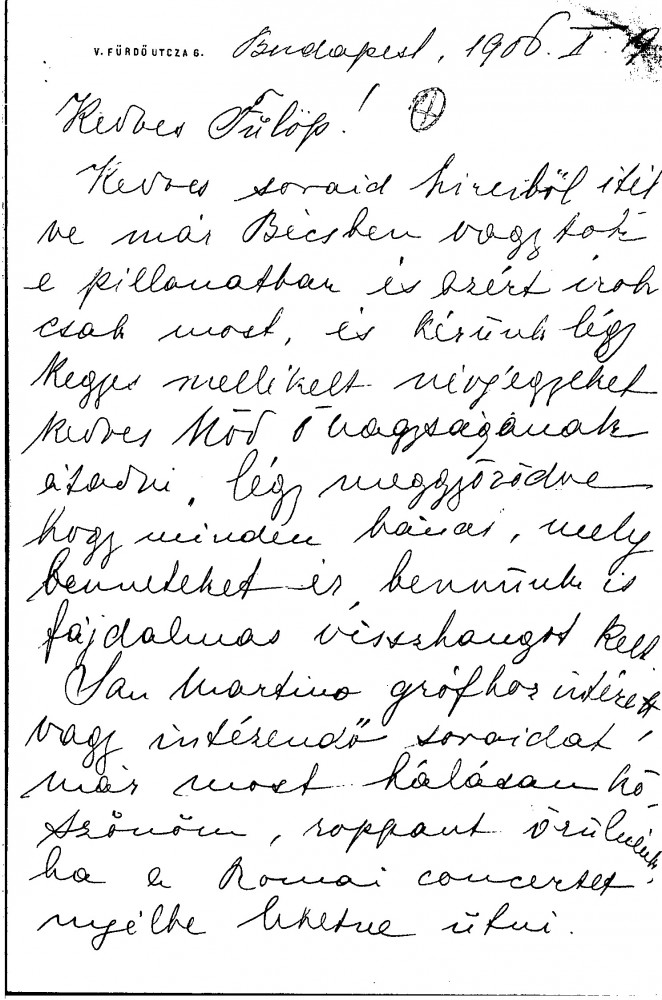 V. FÜRDŐ UTCZA 6. Budapest, 1906. X. 19
Kedves Fülöp!
Kedves soraid hireiből itél
ve már Bécsben vagytok
e pillanatban és azért irok
csak most, és kérünk légy
kegyes mellékelt névjegyeket
kedves Nőd Ő nagyságának
átadni, légy meggyőződve
hogy minden bánat, mely
benneteket ér, bennünk is
fájdalmas visszhangot kelt.
San Martino grófhoz intézett
vagy intézendő soraidat,
már most hálásan kö
szönöm, roppant örülnénk,
ha a Romai concertet
nyélbe lehetne ütni.